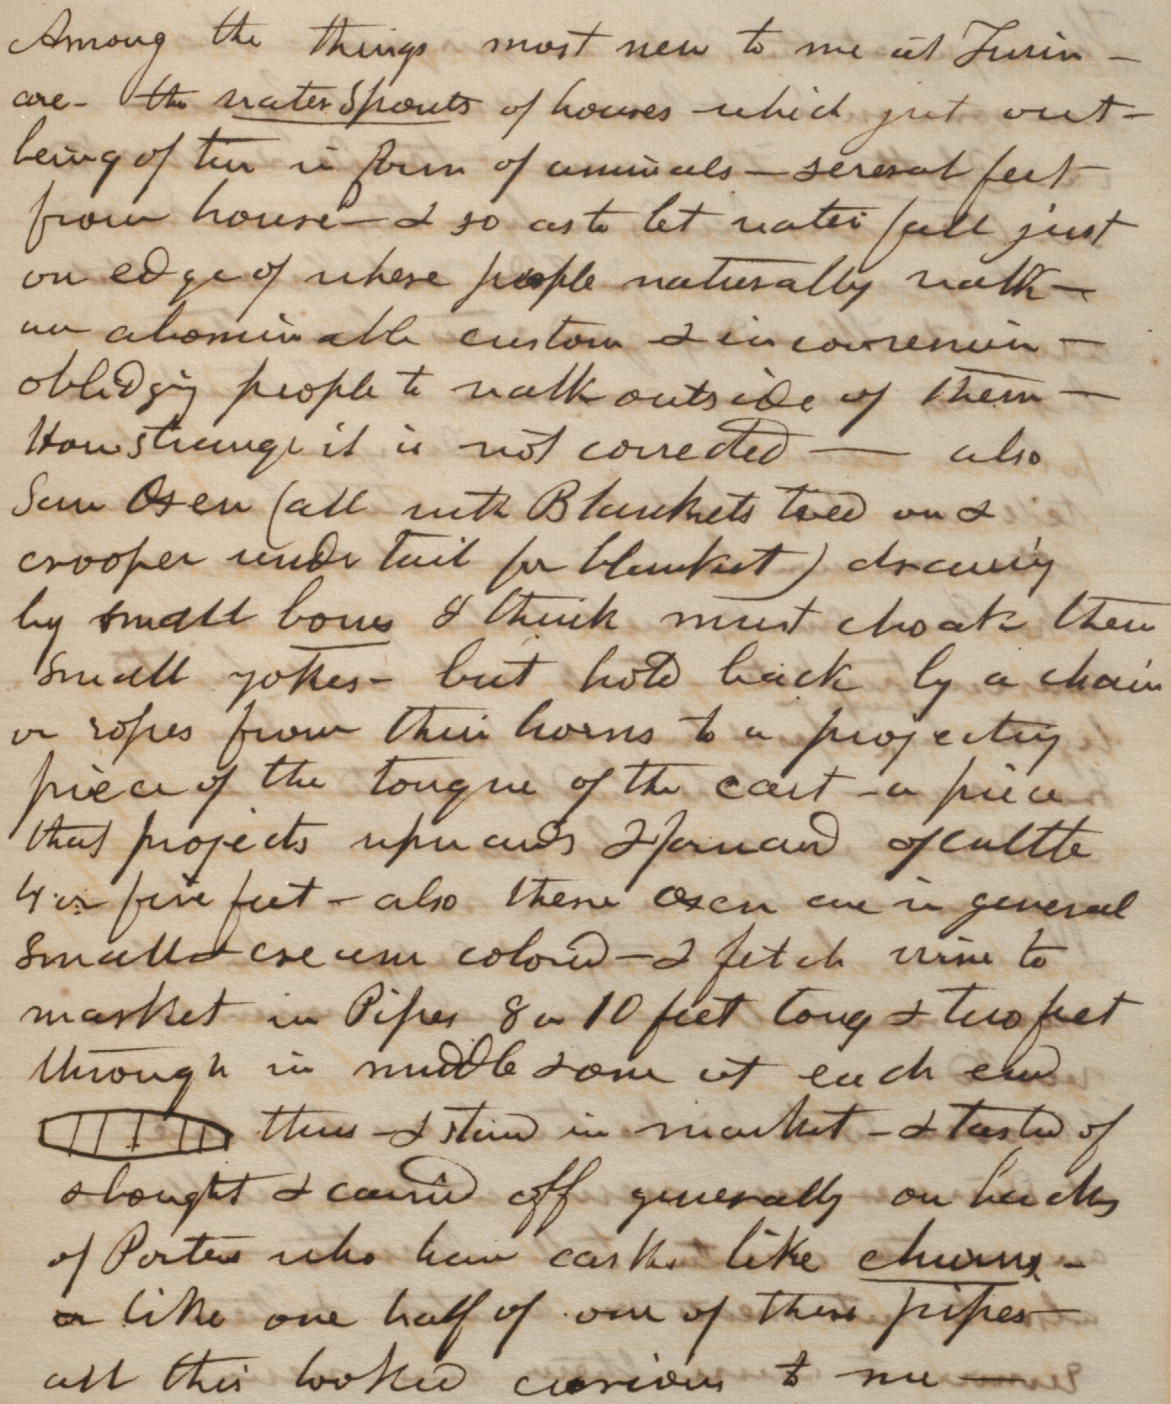 Among the things most new to me at Turin –
are – the water Spouts of houses – which jut out –
being of tin in form of animals – several feet
from house – & so as to let water fall just
on edge of where people naturally walk –
an abominable custom & inconvenien –
oblidging people to walk outside of them –
How strange it is not corrected — also
Saw Oxen (all with Blankets tied on &
crooper under tail for blanket) drawing
by small bows I think must choak them
small yokes – but hold back by a chain
or ropes from their horns to a projecting
piece of the tongue of the cart – a piece
that projects upwards & forward of cattle
4 or five feet – also these oxen are in general
small & cream colord – & fetch wine to
market in Pipes 8 or 10 feet long & two feet
through in middle & one at each end
thus – & stand in market – & tasted of
& bought & carried off generally on backs
of Porters who have casks like churns –
or like one half of one of these pipes –
all this looked curious to me —